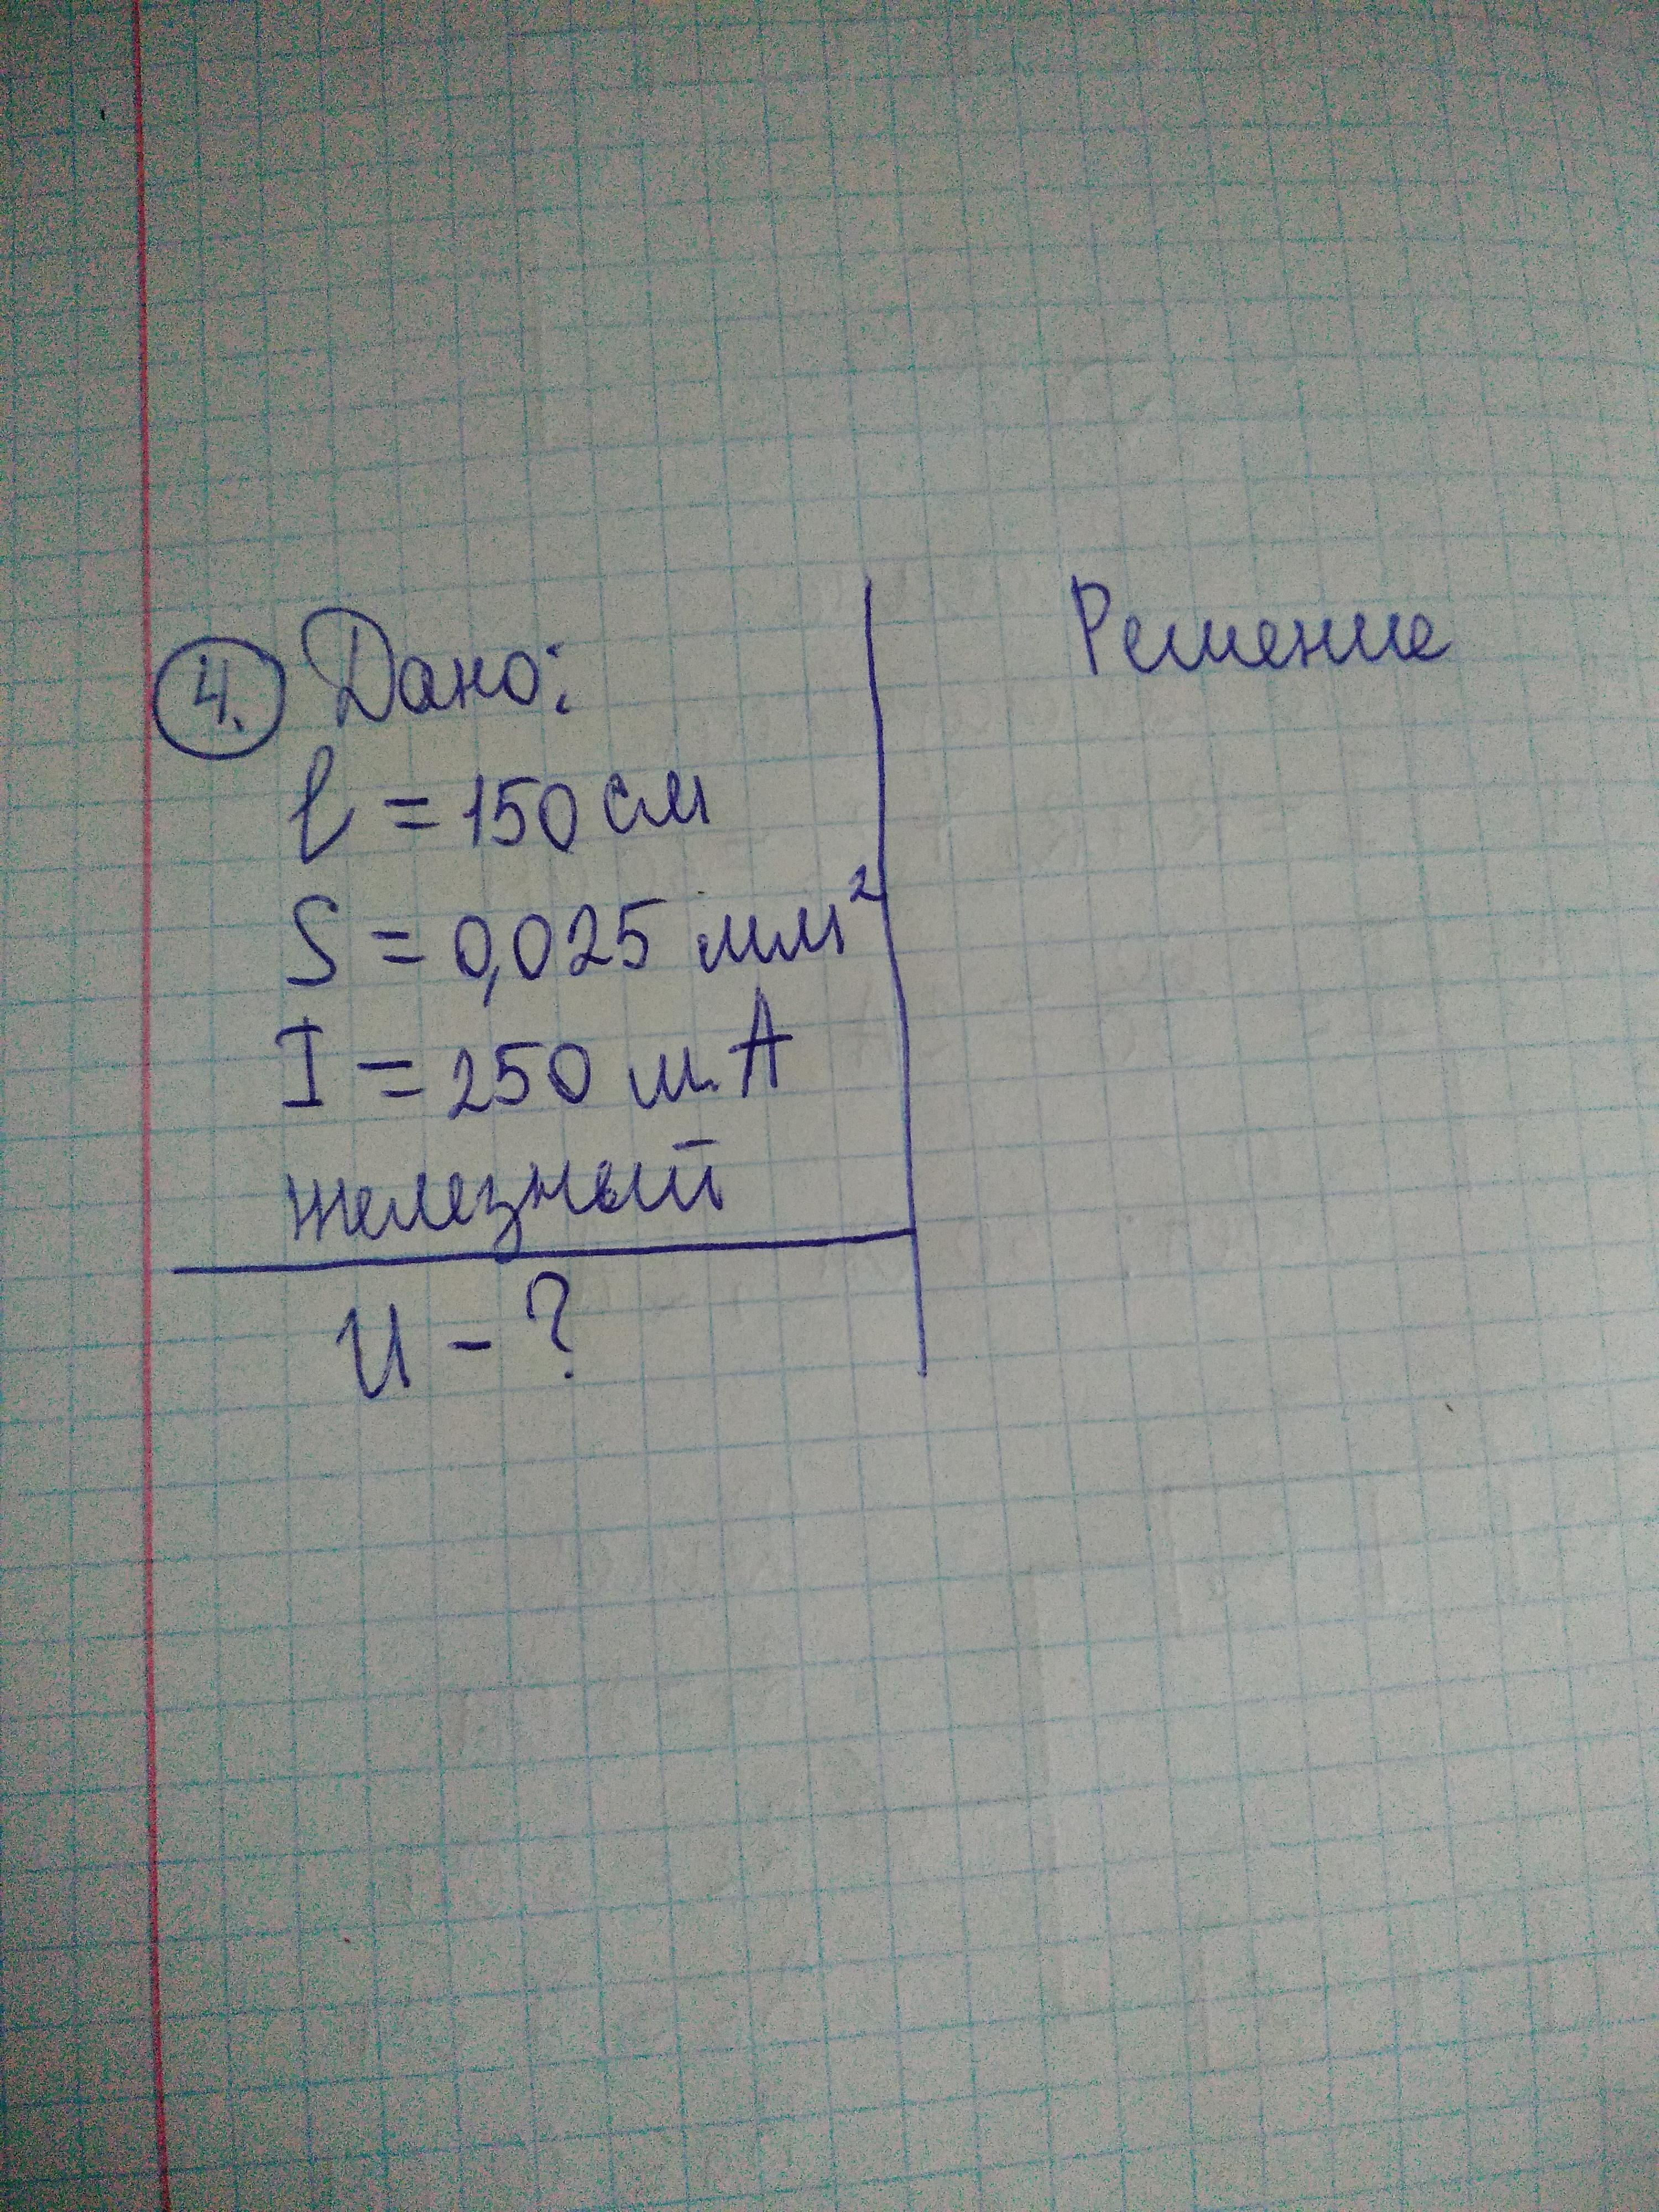 4. Дано:
Решение
l = 150 см
S = 0,025 мм²
I = 250 мА
железный
U - ?